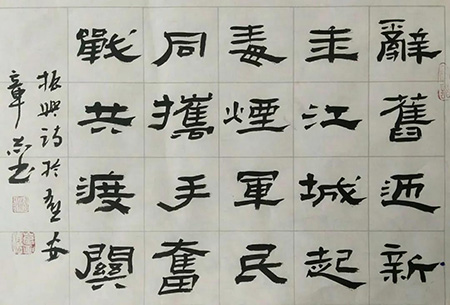 辭舊迎新
年江城起
毒煙軍民
同攜手奮
戰共渡關
振興詩於安
章志书